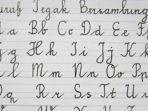 Huruf Tegak Bersambung
a Bb Cc Dd Ee F
g Hh Ii Jj K
l Mm Nn Oo Pp
q Rr Ss Tt U